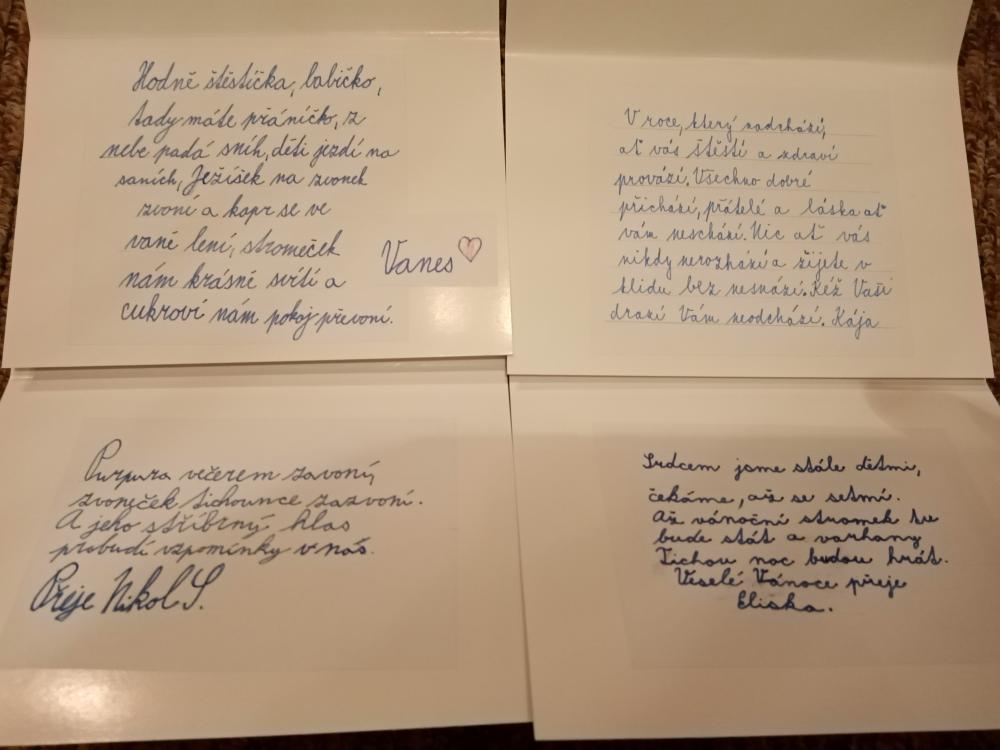 Hodně štěstíčka, babičko,
tady máte přáníčko, z
nebe padá sníh, děti jezdí na
saních, Ježíšek na zvonek
zvoní a kapr se ve
vaně lení, stromeček
nám krásně svítí a
cukroví nám pokoj převoní.
Vanes
V roce, který nadchází,
ať vás štěstí a zdraví
provází. Všechno dobré
přichází, přátelé a láska ať
vám neschází. Nic ať vás
nikdy nerozhází a žijete v
klidu bez nesnází. Kéž Vaši
drazí Vám neodchází. Kája
Purpura večerem zavoní,
zvoneček tichounce zazvoní.
A jeho stříbrný hlas
probudí vzpomínky v nás.
Přeje Nikol S.
Srdcem jsme stále dětmi,
čekáme, až se setmí.
Až vánoční stromek tu
bude stát a varhany
Tichou noc budou hrát.
Veselé Vánoce přeje
Eliska.